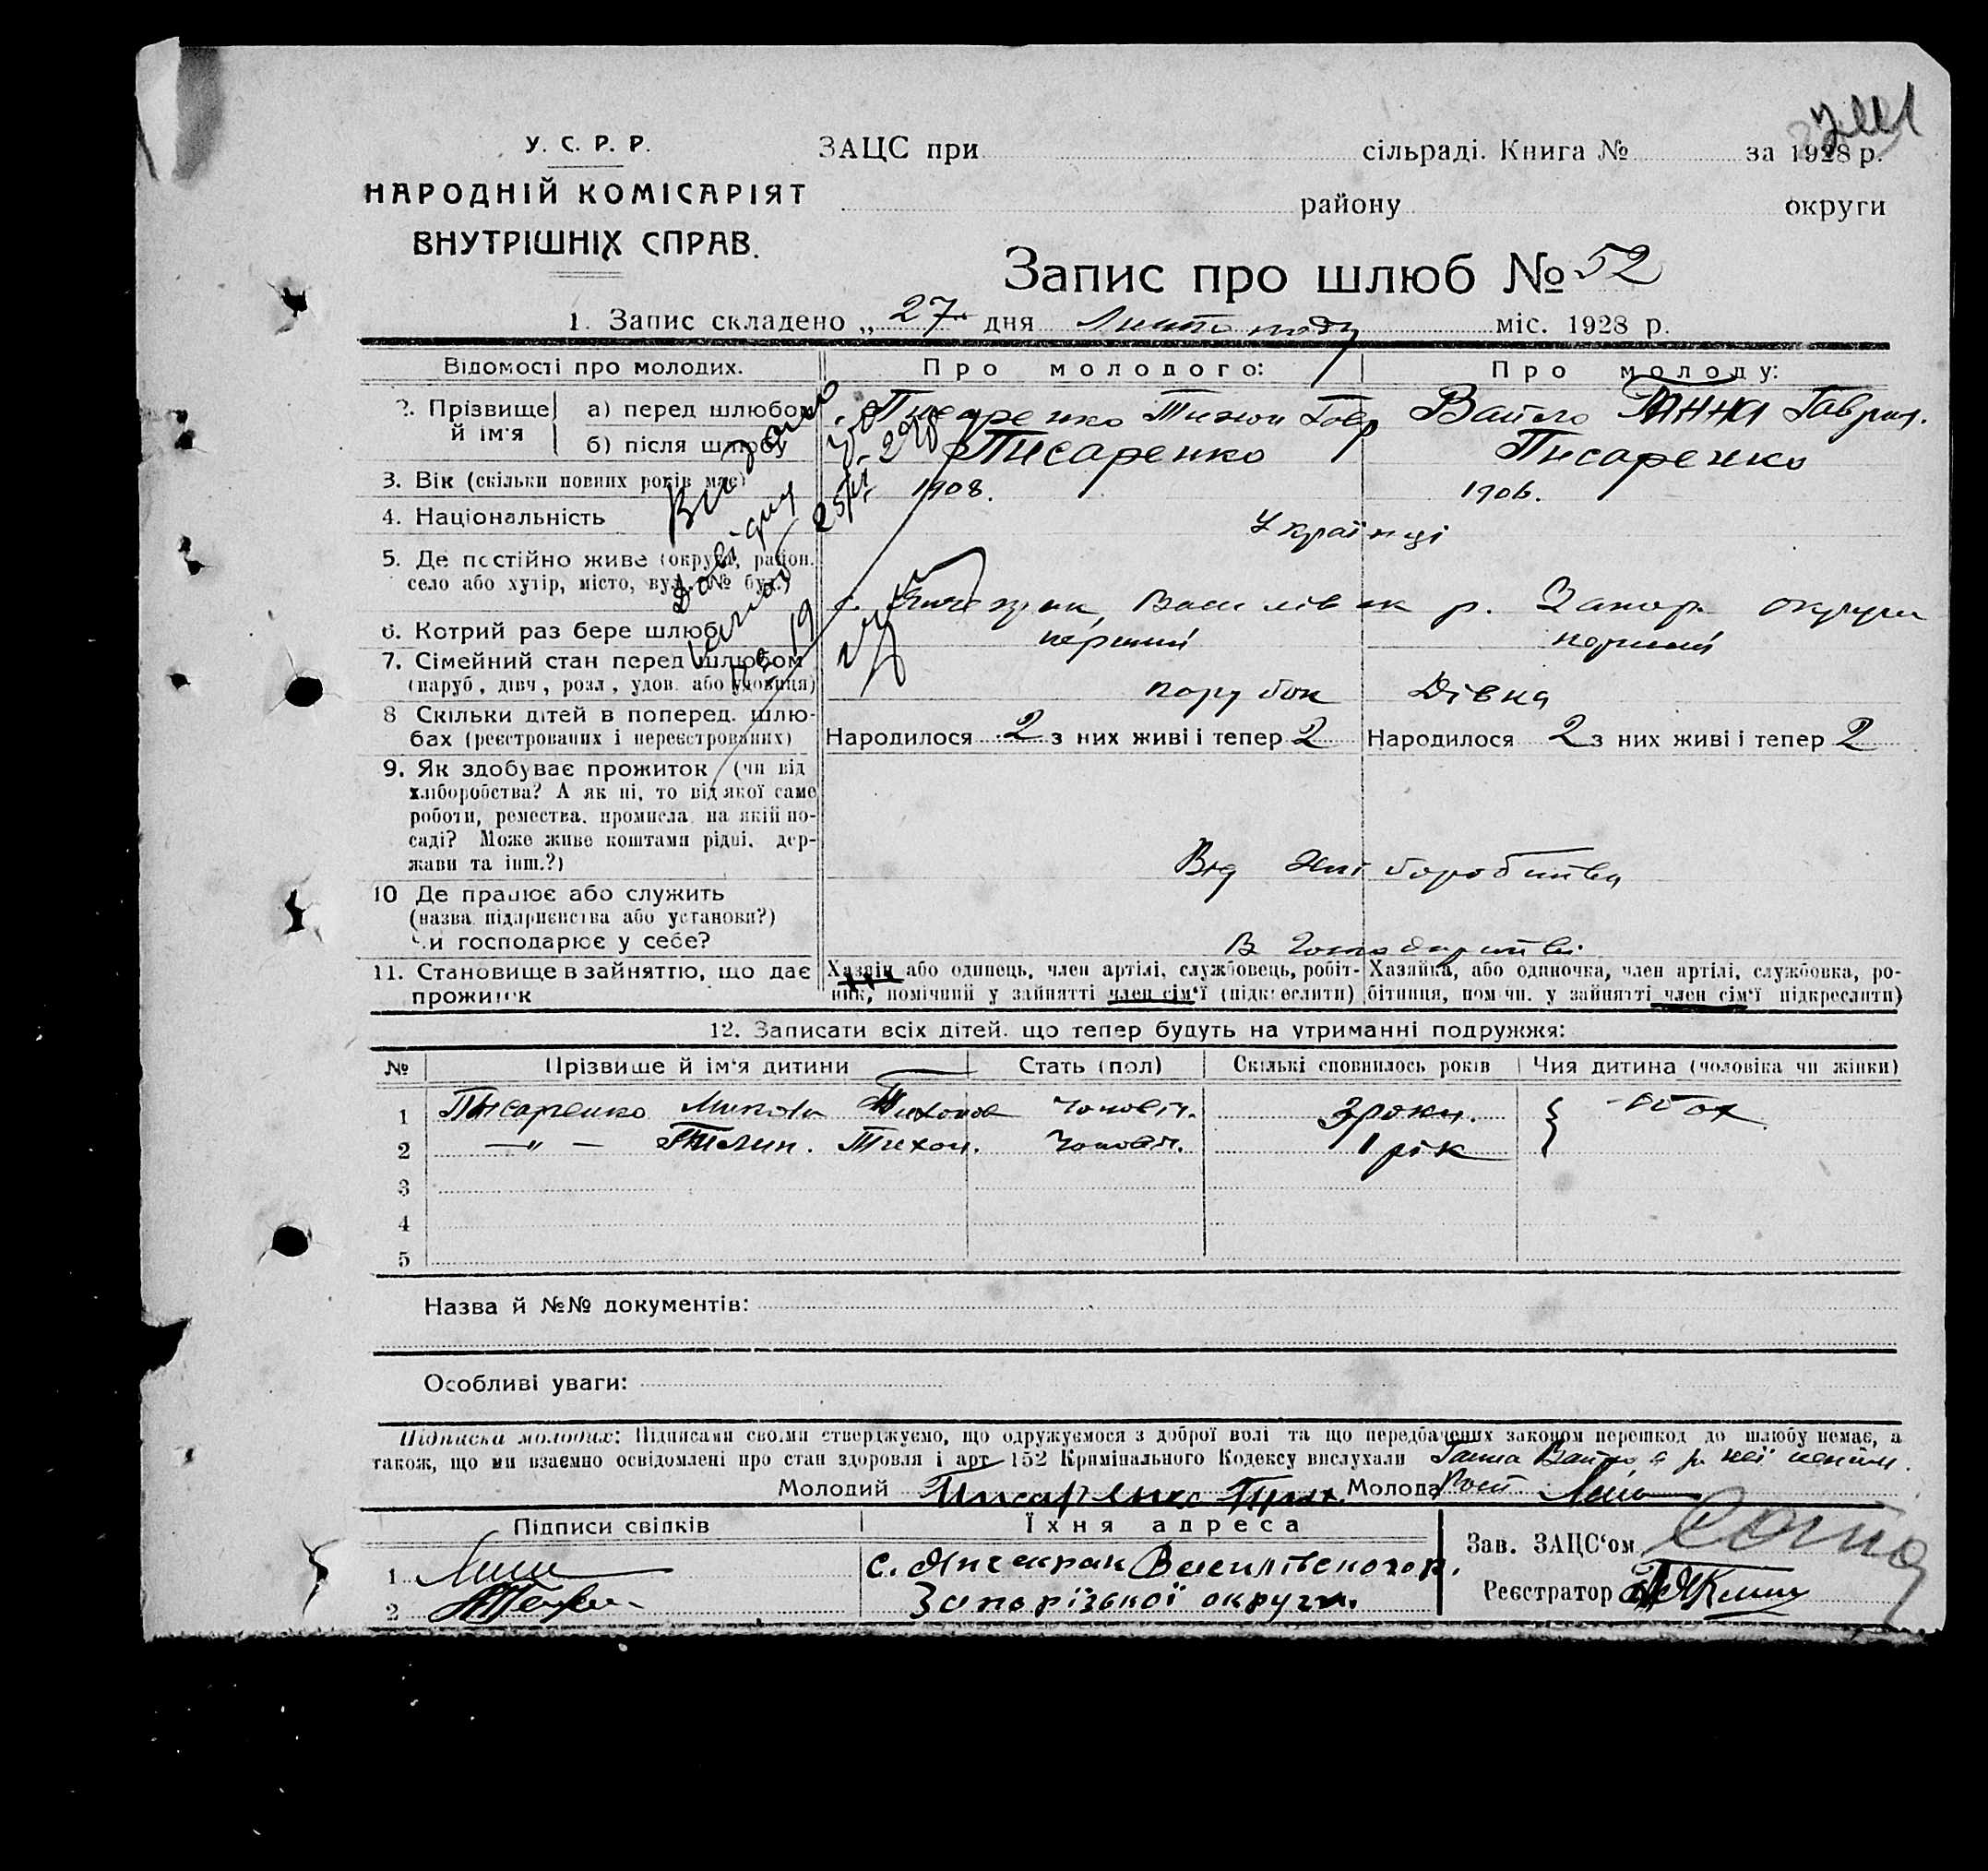 У. С. Р. Р.
НАРОДНІЙ КОМІСАРІЯТ
ВНУТРІШНІХ СПРАВ.
ЗАЦС при сільраді. Книга № за 1928 р.
району округи
Запис про шлюб № 52
1. Запис складено „ 27 дня Листопаду міс. 1928 р.
Відомості про молодих. Про молодого: Про молоду:
2. Прізвище й ім'я а) перед шлюбом Писаренко Тихон Гавр Вайло Ганна Гаврил.
б) після шлюбу Писаренко Писаренко
3. Вік (скільки повних років має) 1908. 1906.
4. Національність Українці
5. Де постійно живе (округа, район.
село або хутір, місто, вул. № буд.)
с. Янчекрак Василівск р. Запор. округи
6. Котрий раз бере шлюб перший перший
7. Сімейний стан перед шлюбом
(паруб, дівч, розл, удов. або удовиця) парубок Дівка
8 Скільки дітей в поперед. шлю-
бах (реєстрованих і нереєстрованих) Народилося 2 з них живі і тепер 2 Народилося 2 з них живі і тепер 2
9. Як здобуває прожиток (чи від
хліборобства? А як ні, то від якої саме
роботи, ремества, промисла, на якій по-
саді? Може живе коштами рідні, дер-
жави та інш.?) Від хліборобства
10 Де працює або служить
(назва підприємства або установи?)
чи господарює у себе? В господарстві
11. Становище в зайняттю, що дає
прожиток
Хазяїн або одинець, член артілі, службовець, робіт-
ник, помічний у зайнятті член сім'ї (підкреслити)
Хазяйка, або одиночка, член артілі, службовка, ро-
бітниця, пом чн. у зайнятті член сім'ї підкреслити)
12. Записати всіх дітей, що тепер будуть на утриманні подружжя:
№ Прізвише й ім'я дитини Стать (пол) Скількі сповнилось років Чия дитина (чоловіка чи жінки)
1 Писаренко Микола Тихонов Чоловіч. 3 роки. обох
2 —„— Тихон. Чоловіч. 1 рік
3
4
5
Назва й №№ документів:
Особливі уваги:
Підписка молодих: Підписами своїми стверджуємо, що одружуємося з доброї волі та що передбачених законом перешкод до шлюбу немає, а
також, що ми взаємно освідомлені про стан здоровля і арт 152 Кримінального Кодексу вислухали Ганна Вайло, а за неї
Молодий Писаренко Тих. Молода
Підписи свідків Їхня адреса
Зав. ЗАЦС'ом
1 с. Янчекрак Василівського р.
2 Запорізької округи.
Реєстратор